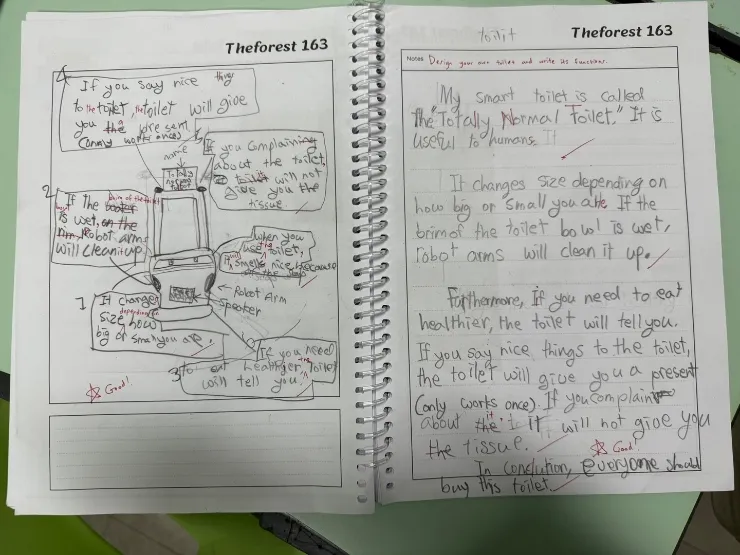 Theforest 163
4
If you say nice thing
to the toilet, the toilet will give
you the a present
(only works once)
name
Totally
normal
toilet
If you complaining
about the toilet,
it will not
give you the
tissue.
2
brim of the toilet
If the
is wet, on the
robot arms
will clean it up.
When you
use the toilet,
it smells nice because
of the
← Robot Arm
Speaker
1
It changes
size, depending on how
big or small you are.
3
If you need
to eat healthier, the toilet
will tell you.
☆ Good!
toilit
Theforest 163
Notes Design your own toilet and write its functions.
My smart toilet is called
the "Totally Normal Toilet." It is
useful to humans. It
It changes size depending on
how big or small you are. If the
brim of the toilet bowl is wet,
robot arms will clean it up.
Furthermore, If you need to eat
healthier, the toilet will tell you.
If you say nice things to the toilet,
the toilet will give you a present
(only works once). If you complain
about the it it, will not give you
the tissue.
☆ Good!
In conclution, everyone should
buy this toilet.